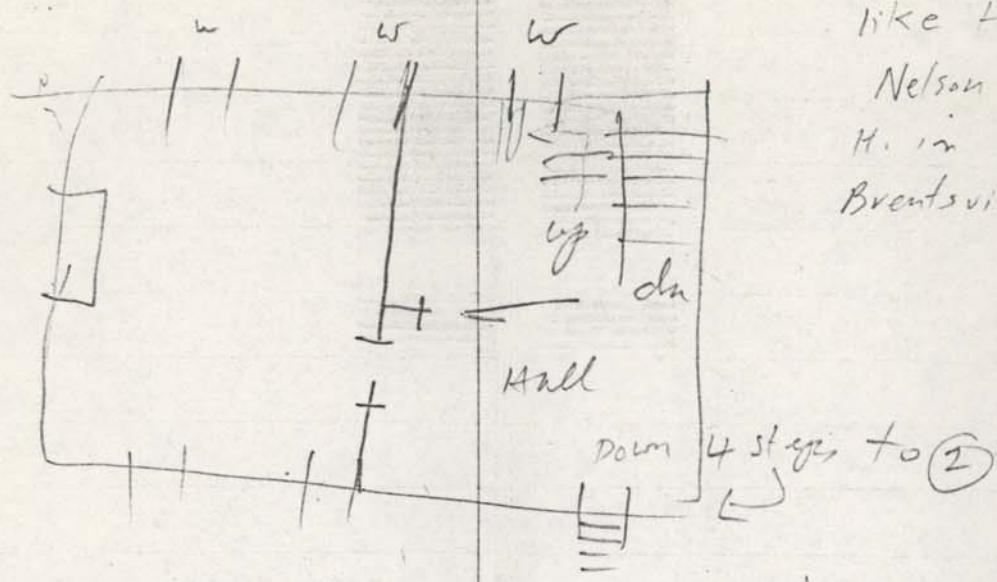 w w w
like
Nelson
H. in
Brentsvi
up
dn
Hall
Down 4 steps to 2